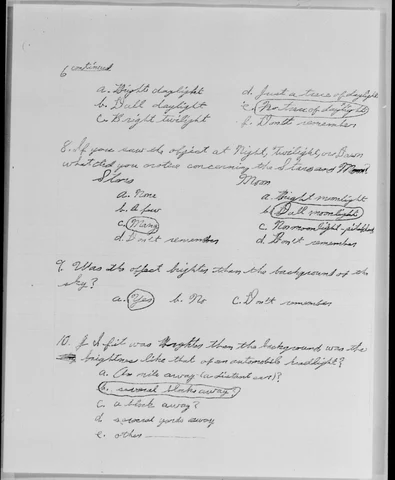 6 continued
a. Bright daylight d. Just a trace of daylight
b. Dull daylight e. No trace of daylight
c. Bright twilight f. Don't remember
8. If you saw the object at Night, Twilight, or Dawn
what did you notice concerning the Stars and Moon?
Stars Moon
a. None a. Bright moonlight
b. A few b. Dull moonlight
c. Many c. No moonlight - pitch dark
d. Don't remember d. Don't remember
9. Was the object brighter than the background of the
sky?
a. Yes b. No c. Don't remember
10. If it was brighter than the background was the
brightness like that of an automobile headlight?
a. A mile away (a distant car)?
b. several blocks away?
c. a block away?
d. several yards away
e. other